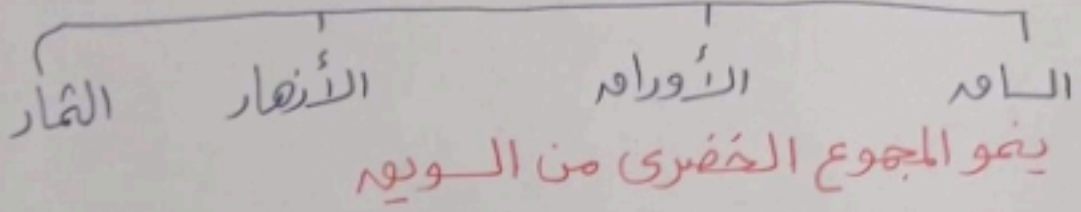 الساق الأوراق الأزهار الثمار
ينمو المجموع الخضرى من السويق